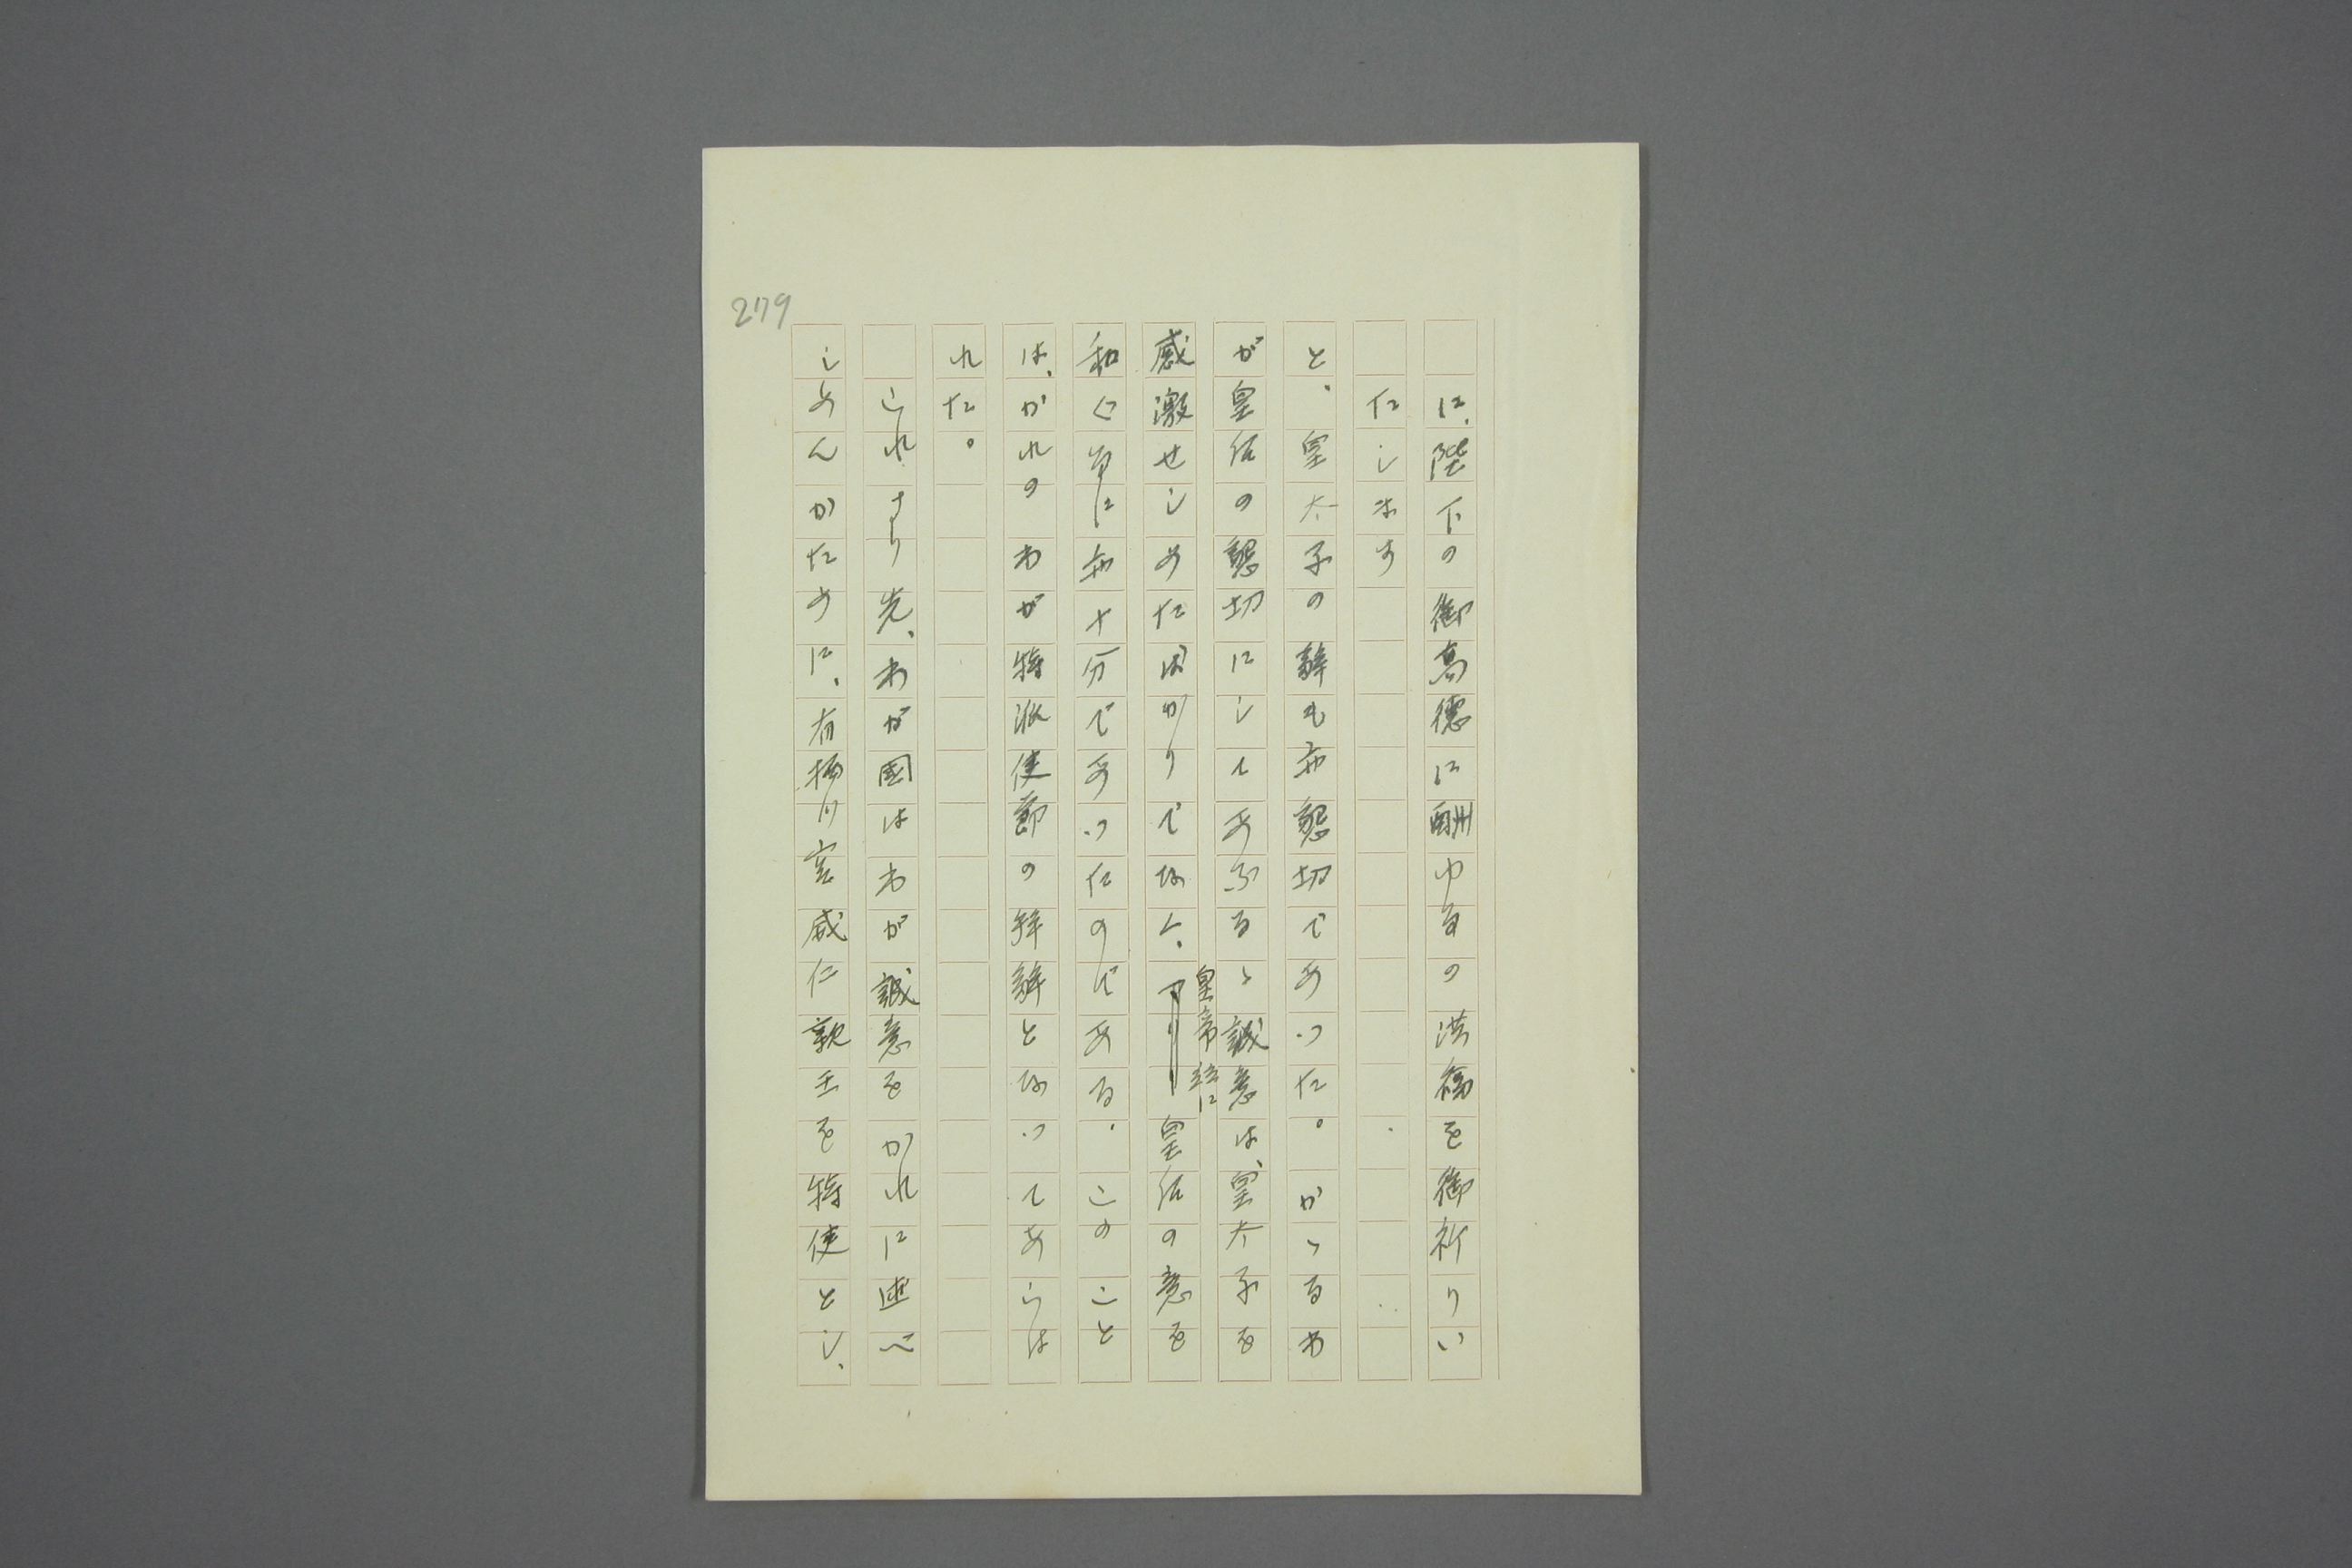 279
に、陛下の御高徳に酬ゆるの洪福を御祈りい
たします
と。皇太子の辭も亦懇切であつた。かゝるわ
が皇后の懇切にしてあふるゝ誠意は、皇太子を
感激せしめたばかりでなく、皇帝並に皇后の意を
和ぐるに亦十分であつたのである。このこと
は、かれのわが特派使節の拝辭となつてあらは
れた。
これより先、わが國はわが誠意をかれに述べ
しめんかために、有栖川宮威仁親王を特使とし、